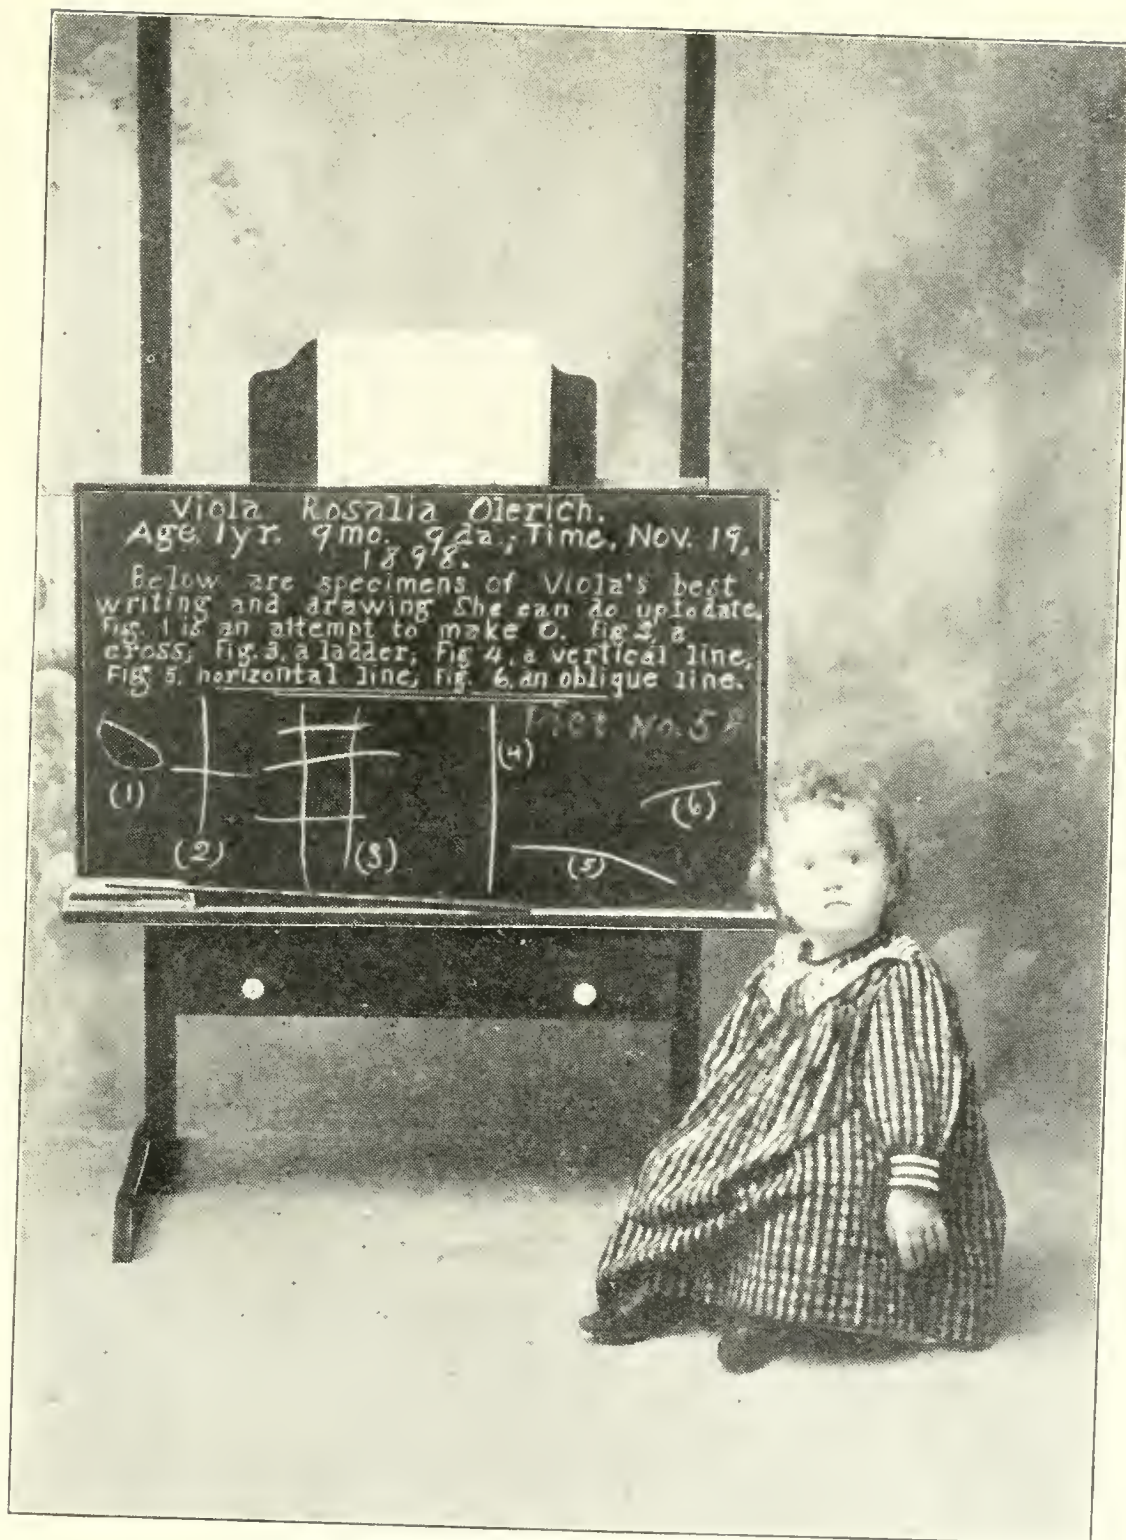 Viola Rosalia Olerich.
Age. 1yr. 9mo. 9da.; Time. Nov. 19,
1898.
Below are specimens of Viola's best
writing and drawing She can do uptodate.
Fig. 1 is an attempt to make O. fig 2, a
cross; Fig. 3, a ladder; Fig 4, a vertical line,
Fig 5, horizontal line; Fig. 6, an oblique line.
Pict No. 58
(4)
(6)
(1)
(2)
(3)
(5)